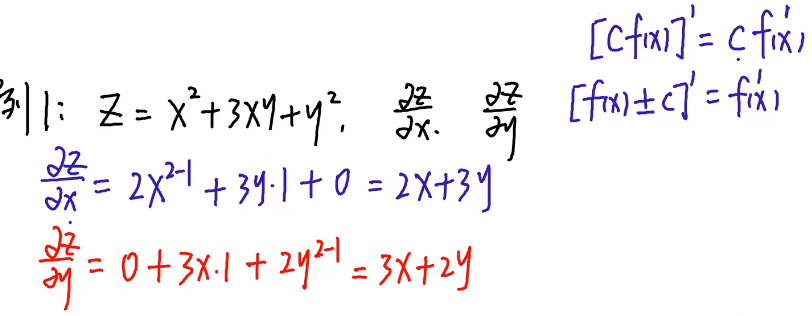 [Cf(x)]' = Cf'(x)
例1: Z = x²+3xy+y², ∂z/∂x. ∂z/∂y [f(x)±c]' = f'(x)
∂z/∂x = 2x²⁻¹ + 3y·1 + 0 = 2x+3y
∂z/∂y = 0+3x·1 + 2y²⁻¹ = 3x+2y